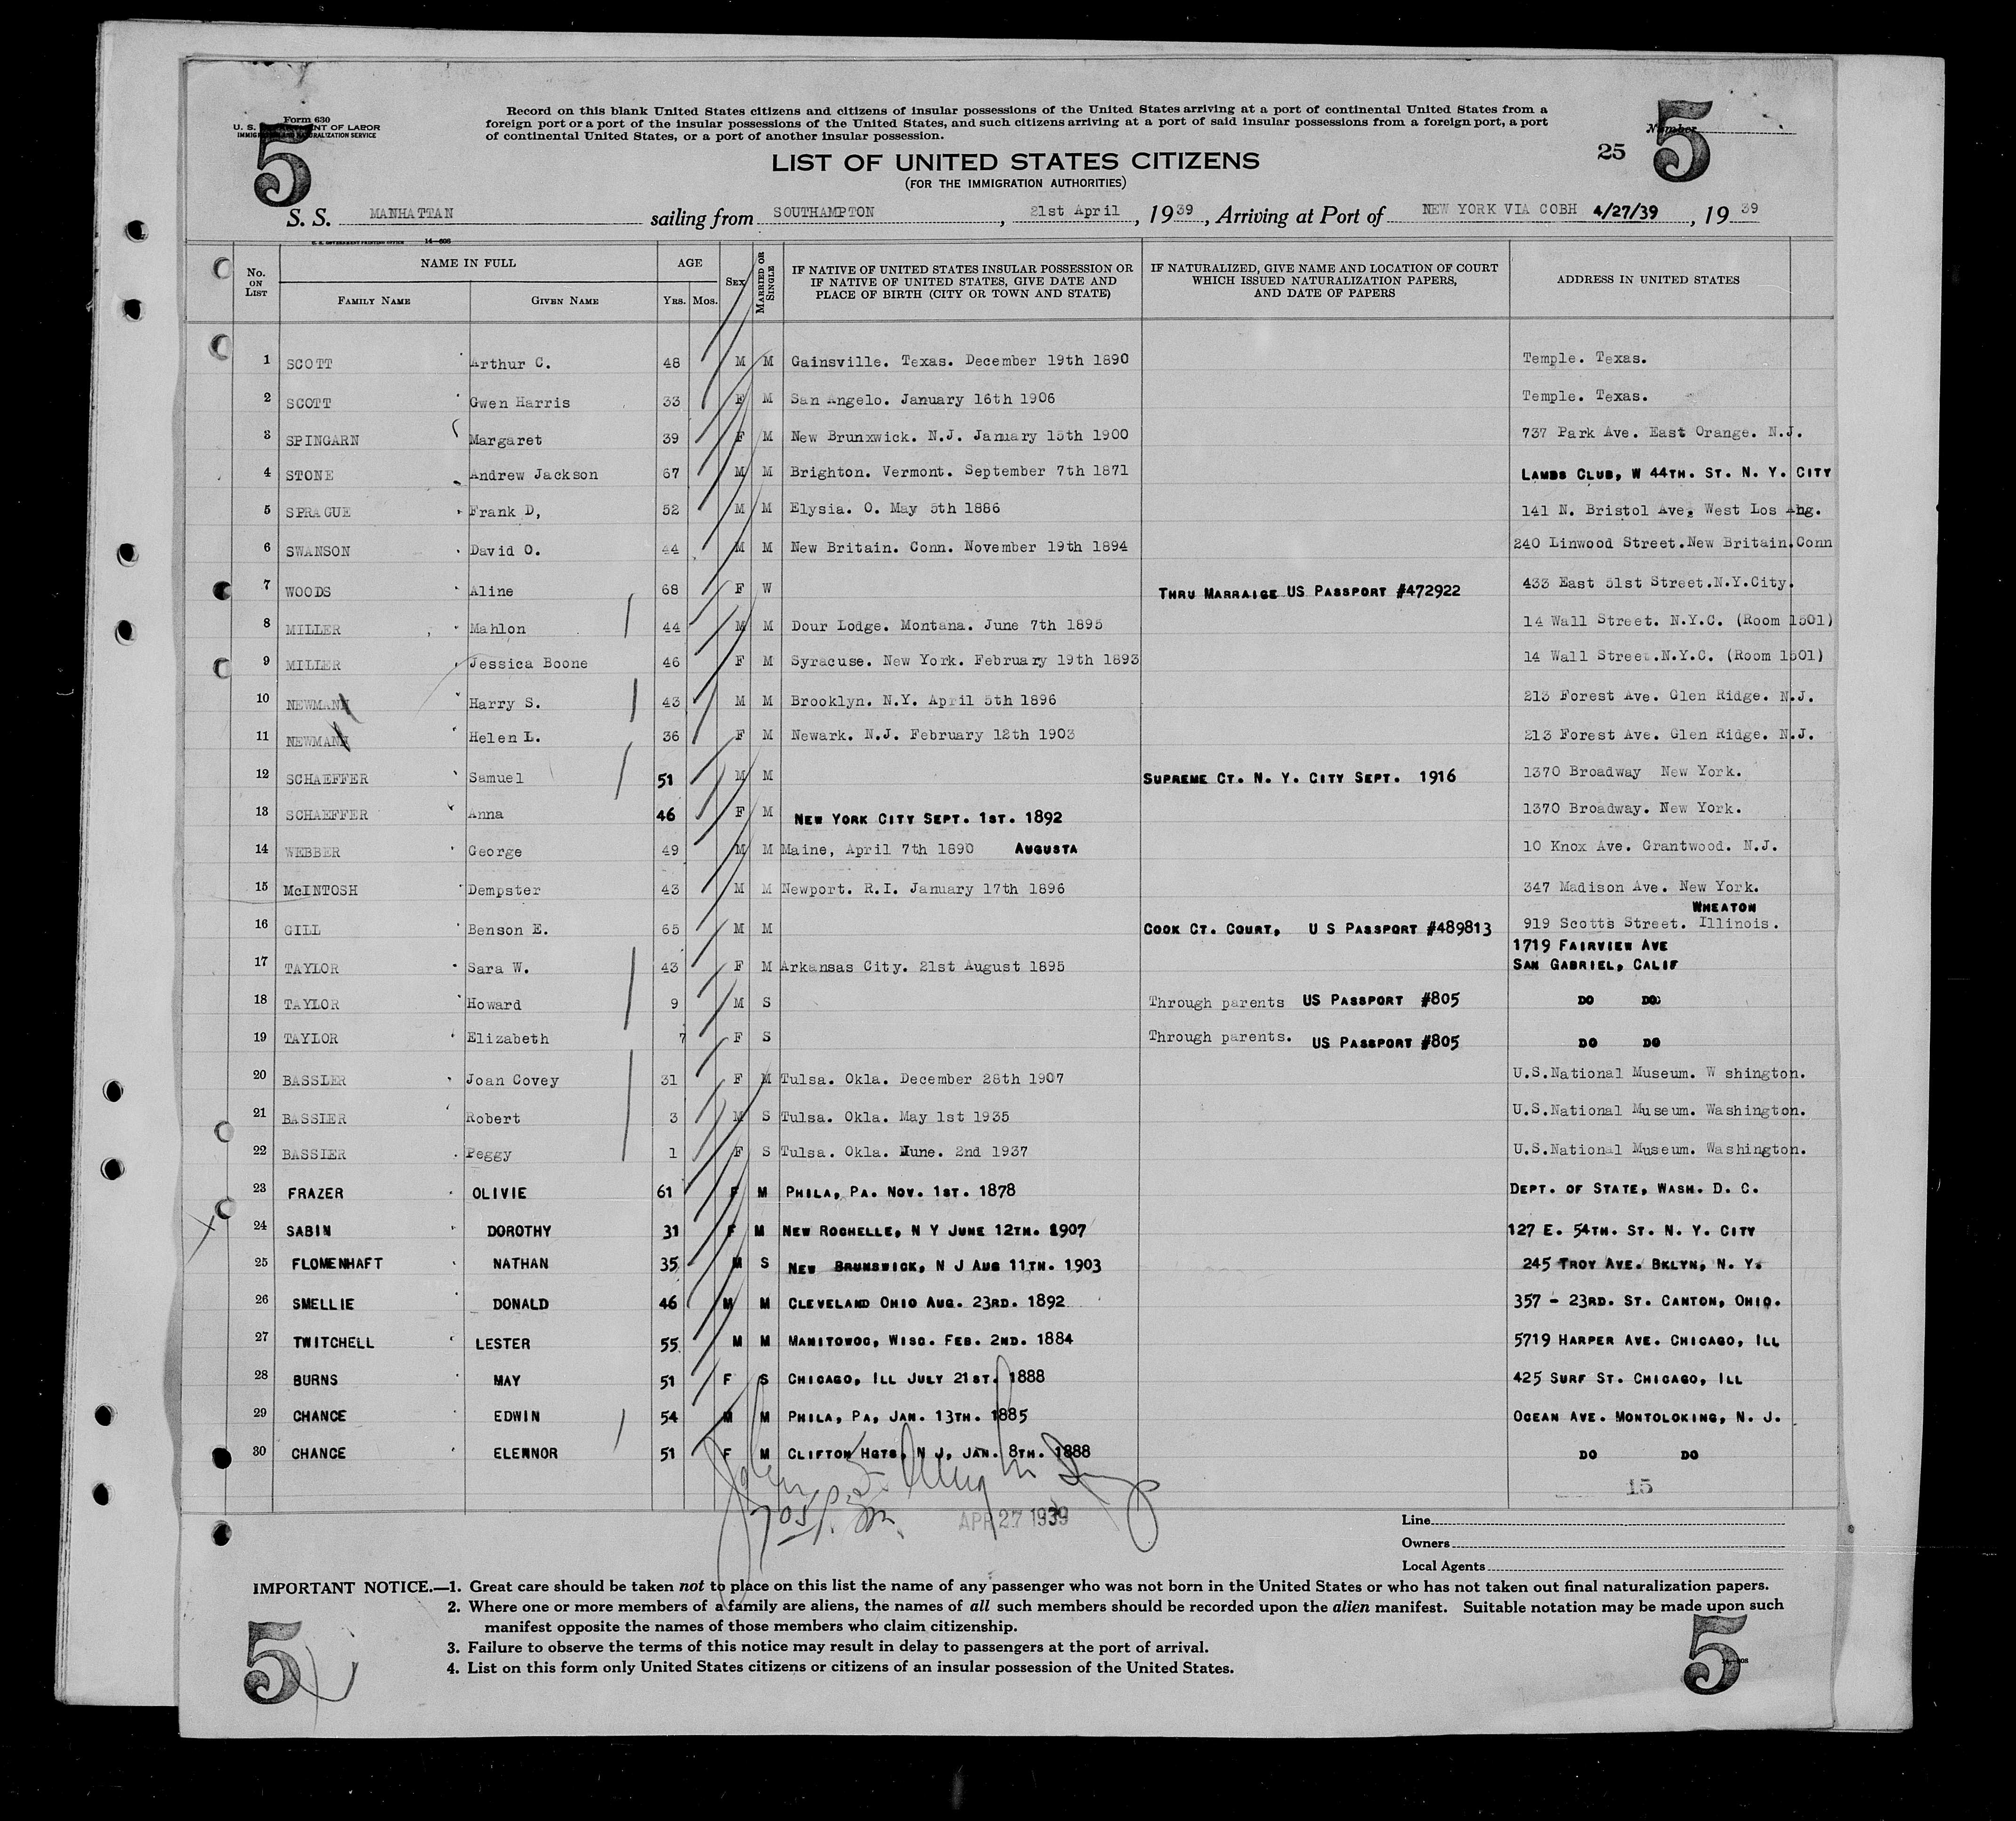 Form 630
U. S. DEPARTMENT OF LABOR
IMMIGRATION AND NATURALIZATION SERVICE
5
Record on this blank United States citizens and citizens of insular possessions of the United States arriving at a port of continental United States from a
foreign port or a port of the insular possessions of the United States, and such citizens arriving at a port of said insular possessions from a foreign port, a port
of continental United States, or a port of another insular possession.
Number
5
25
LIST OF UNITED STATES CITIZENS
(FOR THE IMMIGRATION AUTHORITIES)
S. S. MANHATTAN sailing from SOUTHAMPTON, 21st April, 1939, Arriving at Port of NEW YORK VIA COBH 4/27/39, 1939
U. S. GOVERNMENT PRINTING OFFICE 14—608
No. ON LIST
NAME IN FULL
FAMILY NAME
GIVEN NAME
AGE
YRS. MOS.
SEX
MARRIED OR SINGLE
IF NATIVE OF UNITED STATES INSULAR POSSESSION OR
IF NATIVE OF UNITED STATES, GIVE DATE AND
PLACE OF BIRTH (CITY OR TOWN AND STATE)
IF NATURALIZED, GIVE NAME AND LOCATION OF COURT
WHICH ISSUED NATURALIZATION PAPERS,
AND DATE OF PAPERS
ADDRESS IN UNITED STATES
1 SCOTT Arthur C. 48 M M Gainsville. Texas. December 19th 1890 Temple. Texas.
2 SCOTT Gwen Harris 33 F M San Angelo. January 16th 1906 Temple. Texas.
3 SPINGARN Margaret 39 F M New Brunxwick. N.J. January 15th 1900 737 Park Ave. East Orange. N.J.
4 STONE Andrew Jackson 67 M M Brighton. Vermont. September 7th 1871 LAMBS CLUB, W 44TH. ST. N. Y. CITY
5 SPRAGUE Frank D, 52 M M Elysia. O. May 5th 1886 141 N. Bristol Ave, West Los Ang.
6 SWANSON David O. 44 M M New Britain. Conn. November 19th 1894 240 Linwood Street.New Britain.Conn
7 WOODS Aline 68 F W THRU MARRAIGE US PASSPORT #472922 433 East 51st Street.N.Y.City.
8 MILLER Mahlon 44 M M Dour Lodge. Montana. June 7th 1895 14 Wall Street. N.Y.C. (Room 1501)
9 MILLER Jessica Boone 46 F M Syracuse. New York. February 19th 1893 14 Wall Street.N.Y.C. (Room 1501)
10 NEWMANN Harry S. 43 M M Brooklyn. N.Y. April 5th 1896 213 Forest Ave. Glen Ridge. N.J.
11 NEWMANN Helen L. 36 F M Newark. N.J. February 12th 1903 213 Forest Ave. Glen Ridge. N.J.
12 SCHAEFFER Samuel 51 M M SUPREME CT. N. Y. CITY SEPT. 1916 1370 Broadway New York.
13 SCHAEFFER Anna 46 F M NEW YORK CITY SEPT. 1ST. 1892 1370 Broadway. New York.
14 WEBBER George 49 M M Maine, April 7th 1890 AUGUSTA 10 Knox Ave. Grantwood. N.J.
15 McINTOSH Dempster 43 M M Newport. R.I. January 17th 1896 347 Madison Ave. New York.
WHEATON
16 GILL Benson E. 65 M M COOK CT. COURT, U S PASSPORT #489813 919 Scotts Street. Illinois.
1719 FAIRVIEW AVE
17 TAYLOR Sara W. 43 F M Arkansas City. 21st August 1895 SAN GABRIEL, CALIF
18 TAYLOR Howard 9 M S Through parents US PASSPORT #805 DO DO
19 TAYLOR Elizabeth 7 F S Through parents. US PASSPORT #805 DO DO
20 BASSLER Joan Covey 31 F M Tulsa. Okla. December 28th 1907 U.S.National Museum. W shington.
21 BASSIER Robert 3 M S Tulsa. Okla. May 1st 1935 U.S.National Museum. Washington.
22 BASSIER Peggy 1 F S Tulsa. Okla. June. 2nd 1937 U.S.National Museum. Washington.
23 FRAZER OLIVIE 61 F M PHILA, PA. NOV. 1ST. 1878 DEPT. OF STATE, WASH. D. C.
24 SABIN DOROTHY 31 F M NEW ROCHELLE, N Y JUNE 12TH. 1907 127 E. 54TH. ST. N. Y. CITY
25 FLOMENHAFT NATHAN 35 M S NEW BRUNSWICK, N J AUG 11TH. 1903 245 TROY AVE. BKLYN, N. Y.
26 SMELLIE DONALD 46 M M CLEVELAND OHIO AUG. 23RD. 1892 357 - 23RD. ST. CANTON, OHIO.
27 TWITCHELL LESTER 55 M M MANITOWOC, WISC. FEB. 2ND. 1884 5719 HARPER AVE. CHICAGO, ILL
28 BURNS MAY 51 F S CHICAGO, ILL JULY 21ST. 1888 425 SURF ST. CHICAGO, ILL
29 CHANCE EDWIN 54 M M PHILA, PA, JAN. 13TH. 1885 OCEAN AVE. MONTOLOKING, N. J.
30 CHANCE ELENNOR 51 F M CLIFTON HGTS, N J, JAN. 8TH. 1888 DO DO
15
APR 27 1939
Line
Owners
Local Agents
IMPORTANT NOTICE.—1. Great care should be taken not to place on this list the name of any passenger who was not born in the United States or who has not taken out final naturalization papers.
2. Where one or more members of a family are aliens, the names of all such members should be recorded upon the alien manifest. Suitable notation may be made upon such
manifest opposite the names of those members who claim citizenship.
3. Failure to observe the terms of this notice may result in delay to passengers at the port of arrival.
4. List on this form only United States citizens or citizens of an insular possession of the United States.
5
5